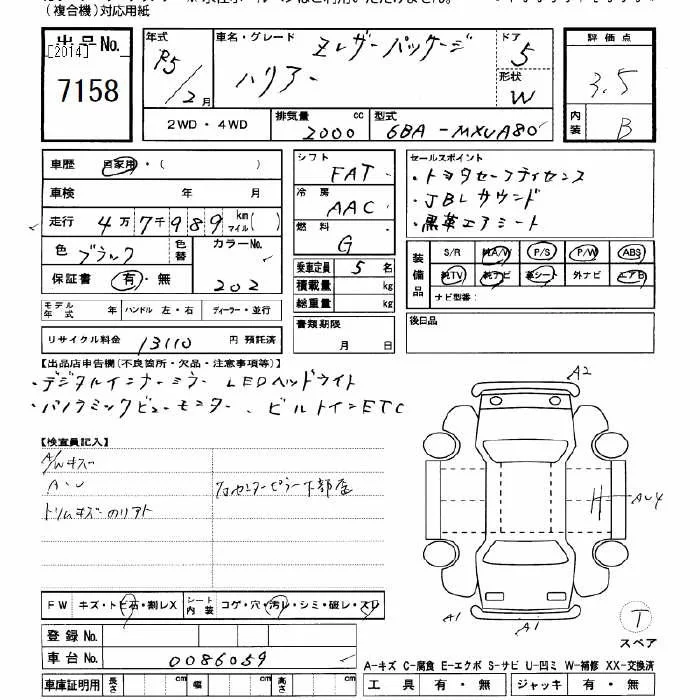 (複合機)対応用紙
出品No.
[2014]
7158
年式
R5/2月
車名・グレード
Zレザーパッケージ
ハリアー
ドア
5
形状
W
評価点
3.5
内装
B
2WD・4WD
排気量
2000 cc
型式
6BA-MXUA80
車歴 自家用・( )
車検 年 月
走行 4万7千989 km マイル( )
色 ブラック
色替
カラーNo.
202
保証書 有・無
モデル年式 年 ハンドル 左・右 ディーラー・並行
リサイクル料金 13110 円 預託済
シフト
FAT
冷房
AAC
燃料
G
乗車定員 5 名
積載量 kg
総重量 kg
書類期限
月 日
セールスポイント
・トヨタセーフティセンス
・JBLサウンド
・黒革エアシート
装備品
S/R 純A/W P/S P/W ABS
純TV 純ナビ 革シート 外ナビ エアB
ナビ型番:
後日品
【出品店申告欄(不良箇所・欠品・注意事項等)】
・デジタルインナーミラー LEDヘッドライト
・パノラミックビューモニター、ビルトインETC
【検査員記入】
A/Wキズ
A・U
トリムキズ
A2
AU4
A1
A1
T
スペア
FW キズ・トビ石・割レX
シート内装 コゲ・穴・汚レ・シミ・破レ・スレ
登録No.
車台No. 0086059
車庫証明用 長さ cm 幅 cm 高さ cm
A-キズ C-腐食 E-エクボ S-サビ U-凹ミ W-補修 XX-交換済
工具 有・無 ジャッキ 有・無